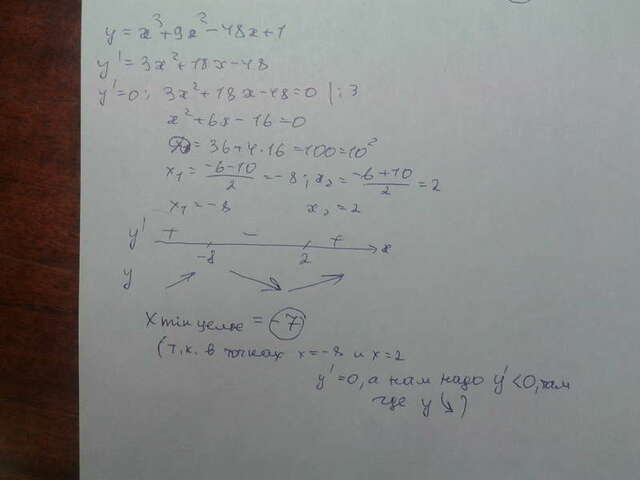 y = x³+9x²-48x+1
y' = 3x²+18x-48
y'=0; 3x²+18x-48=0 |:3
x²+6x-16=0
D = 36+4·16=100=10²
x₁ = (-6-10)/2 = -8; x₂ = (-6+10)/2 = 2
x₁ = -8 x₂ = 2
y' + - + x
-8 2
y ↗ ↘ ↗
x min целое = -7
(т.к. в точках x=-8 и x=2
y'=0, а нам надо y'<0, там
где y ↘)